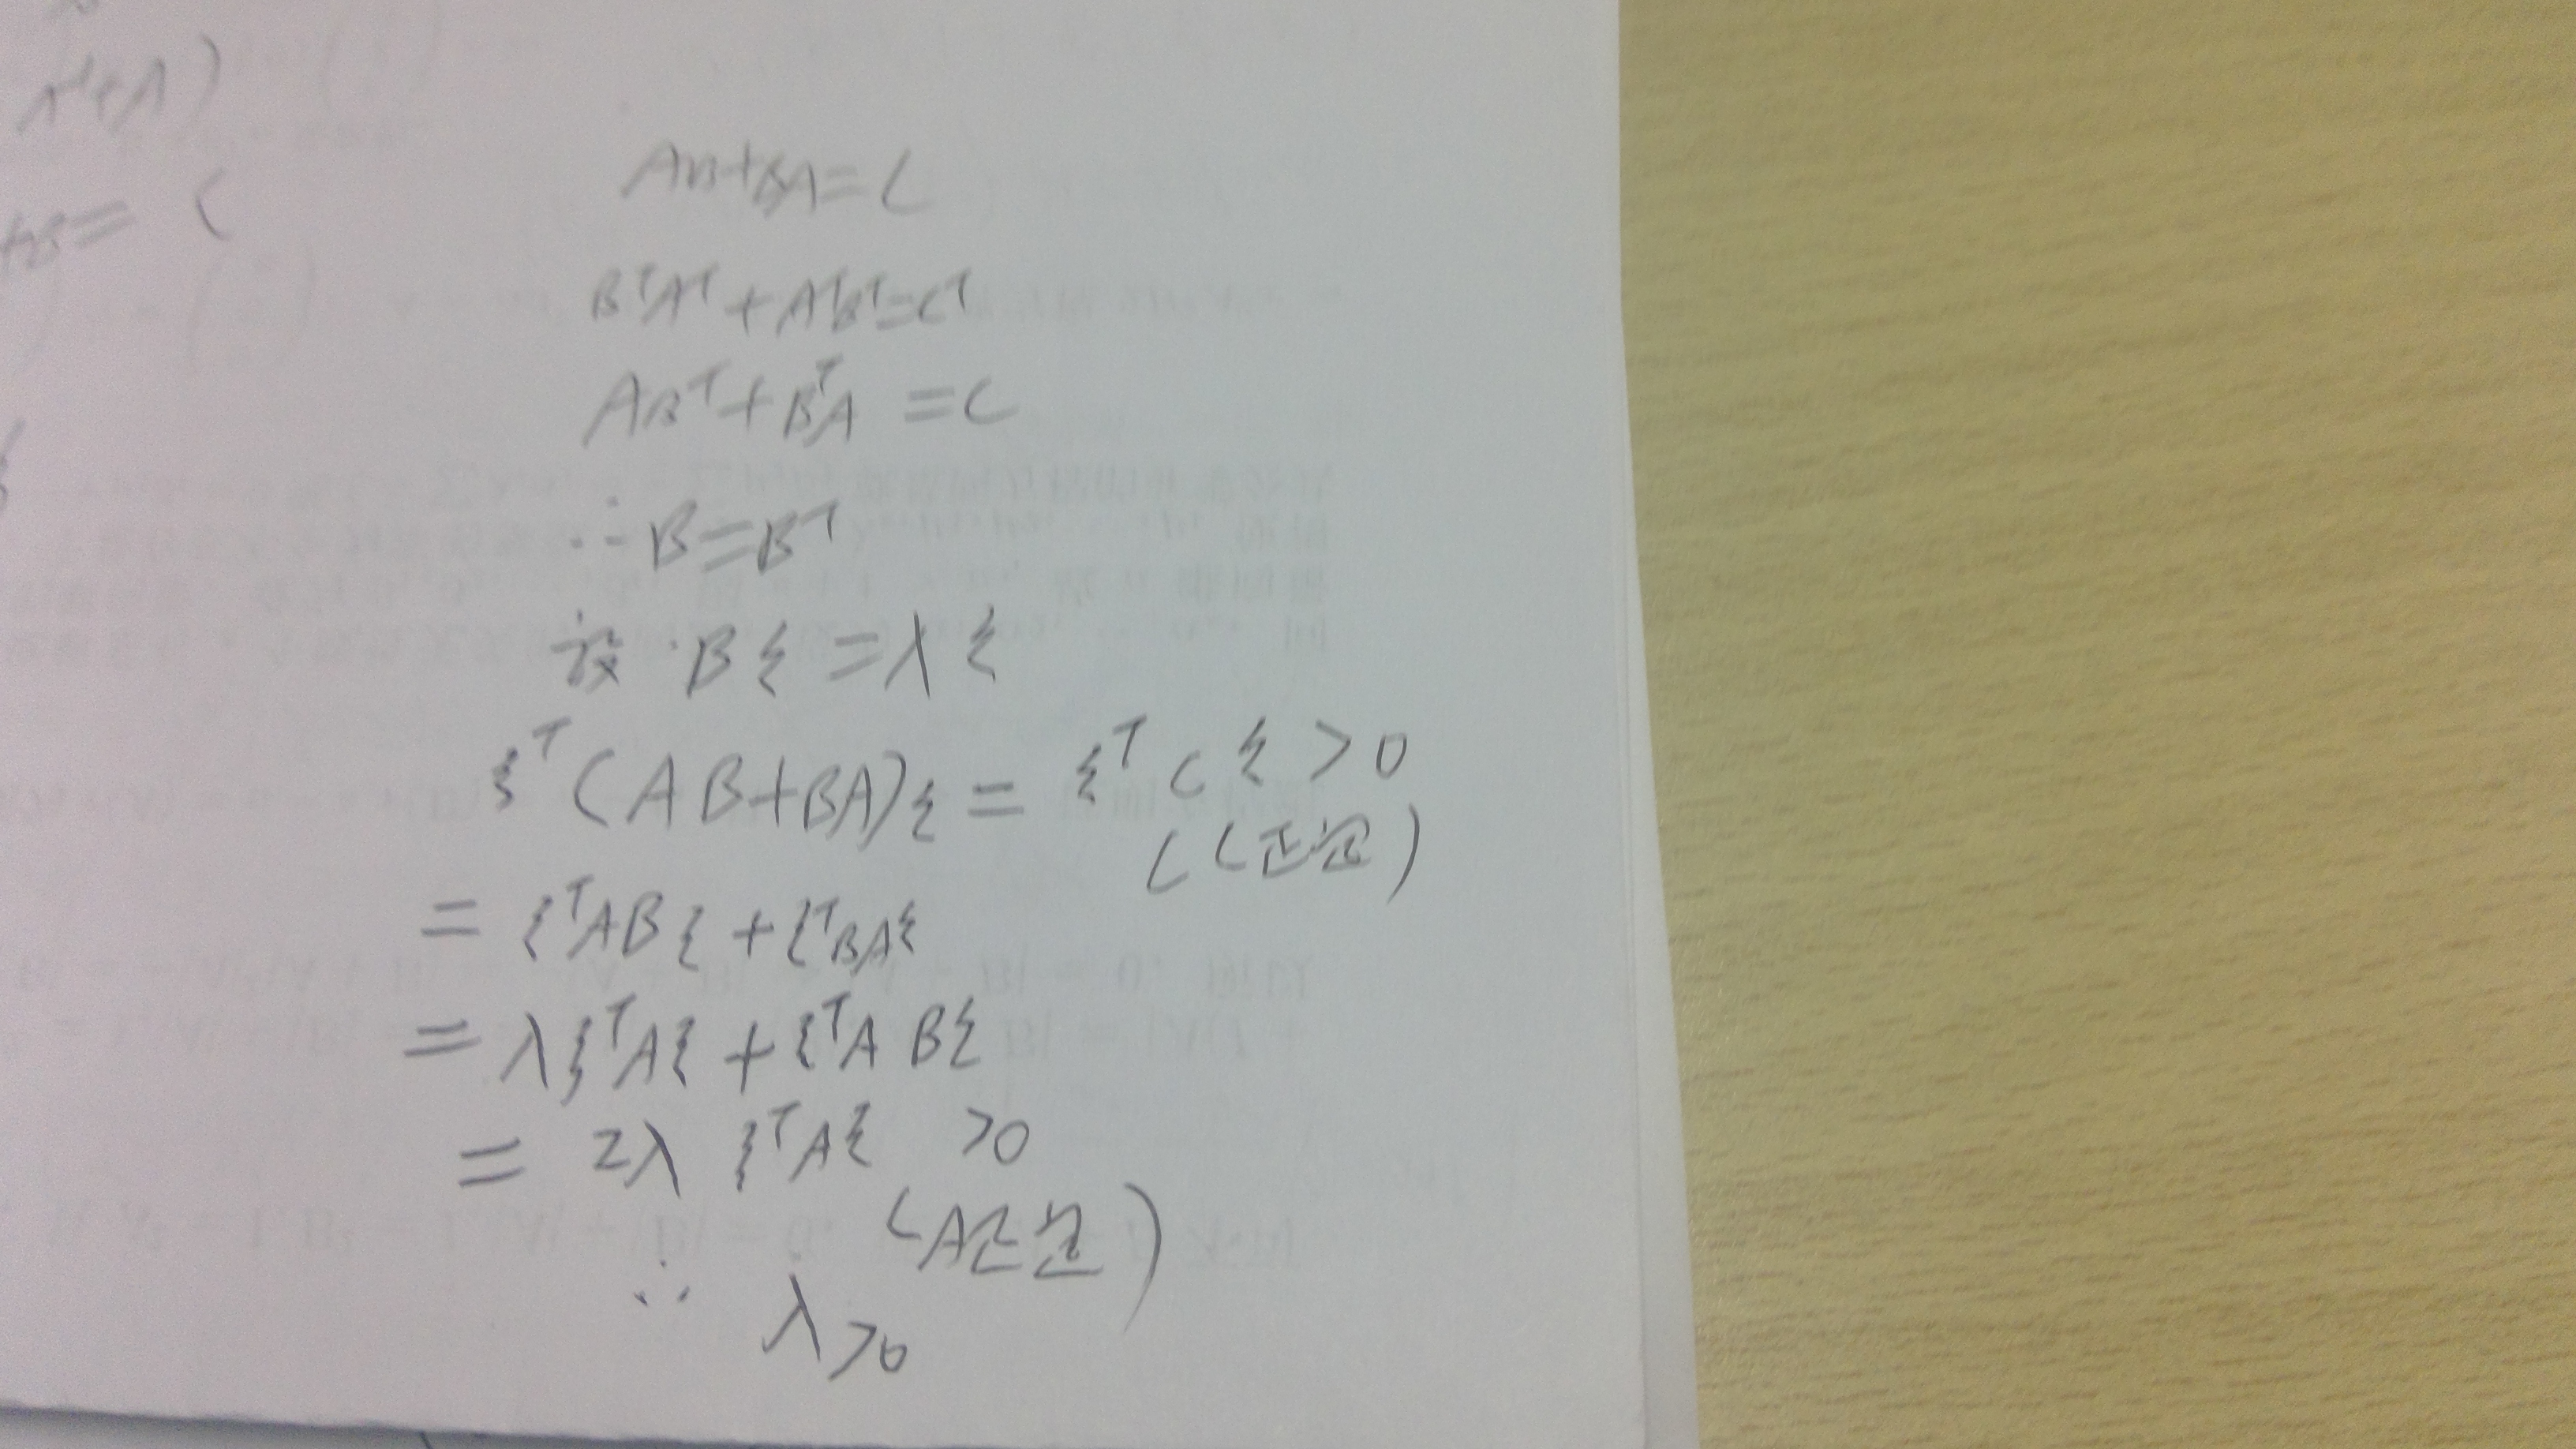 AB+BA=C
BᵀAᵀ+AᵀBᵀ=Cᵀ
ABᵀ+BᵀA=C
∴B=Bᵀ
设·Bξ=λξ
ξᵀ(AB+BA)ξ=ξᵀCξ>0
(C正定)
=ξᵀABξ+ξᵀBAξ
=λξᵀAξ+ξᵀABξ
=2λξᵀAξ >0
(A正定)
∴ λ>0